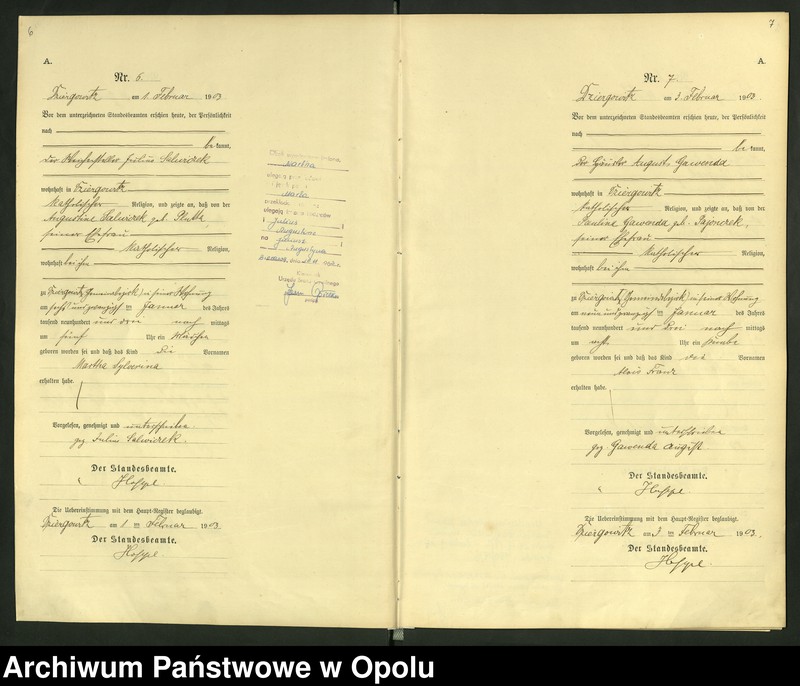 6
A.
Nr. 6.
Dziergowitz am 1. Februar 1903.
Vor dem unterzeichneten Standesbeamten erschien heute, der Persönlichkeit
nach
be kannt,
der Julius Salwiczek
wohnhaft in Dziergowitz
katholischer Religion, und zeigte an, daß von der
Augustine Salwiczek geb.
seiner Ehefrau
katholischer Religion,
wohnhaft bei ihm
zu Dziergowitz, Gemeindebezirk, in seiner Wohnung
am sechs und zwanzigsten Januar des Jahres
tausend neunhundert und drei nach mittags
um fünf Uhr ein Mädchen
geboren worden sei und daß das Kind die Vornamen
Martha Sylverina
erhalten habe.
Vorgelesen, genehmigt und unterschrieben
gez. Julius Salwiczek.
Der Standesbeamte.
Die Uebereinstimmung mit dem Haupt-Register beglaubigt.
Dziergowitz am 1 ten Februar 1903.
Der Standesbeamte.
Martha
Marta
Julius
Augustine
na Juliusz
Augustyna
7
A.
Nr. 7.
Dziergowitz am 3. Februar 1903.
Vor dem unterzeichneten Standesbeamten erschien heute, der Persönlichkeit
nach
be kannt,
Der Häusler August Gawenda
wohnhaft in Dziergowitz
katholischer Religion, und zeigte an, daß von der
Pauline Gawenda geb.
seiner Ehefrau
katholischer Religion,
wohnhaft bei ihm
zu Dziergowitz, Gemeindebezirk, in seiner Wohnung
am neun und zwanzigsten Januar des Jahres
tausend neunhundert und drei nach mittags
um Uhr ein Knabe
geboren worden sei und daß das Kind die Vornamen
Alois Franz
erhalten habe.
Vorgelesen, genehmigt und unterschrieben
gez. Gawenda August
Der Standesbeamte.
Die Uebereinstimmung mit dem Haupt-Register beglaubigt.
Dziergowitz am 3 ten Februar 1903.
Der Standesbeamte.
Archiwum Państwowe w Opolu